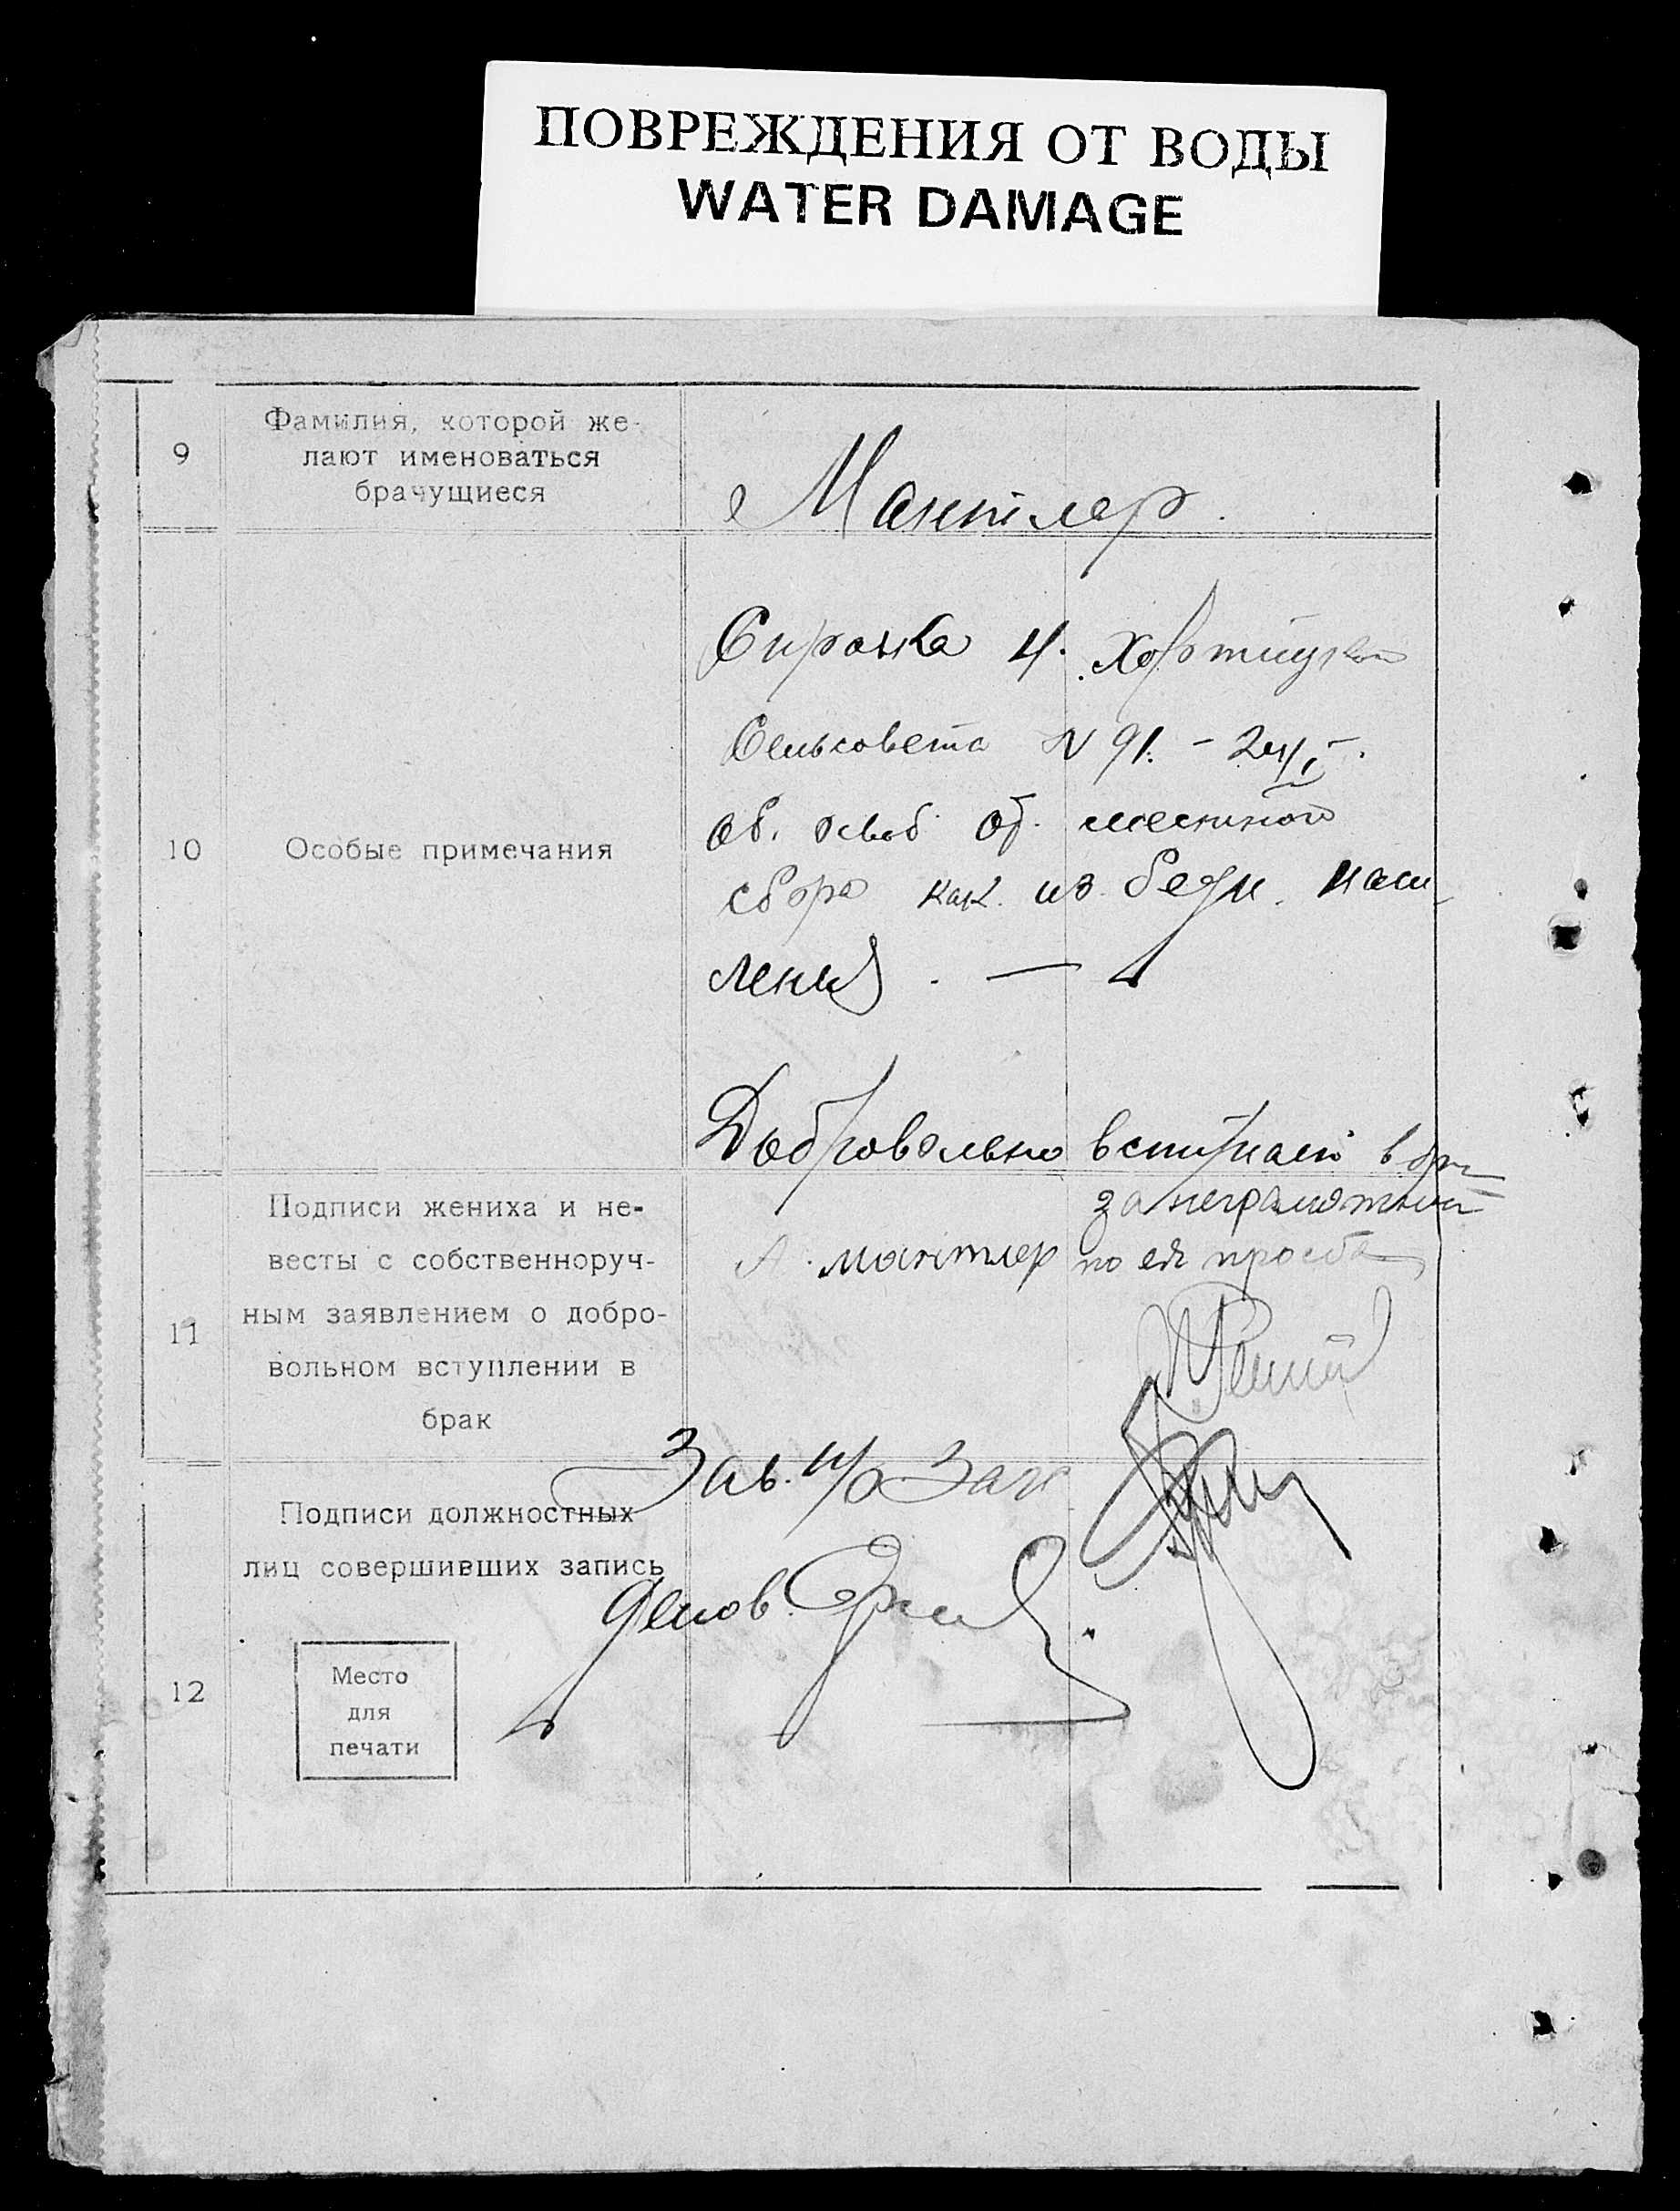 ПОВРЕЖДЕНИЯ ОТ ВОДЫ
WATER DAMAGE
9
Фамилия, которой же-
лают именоваться
брачущиеся
Мантлер.
10
Особые примечания
Справка Н. Хортицкой
Сельсовета N 91. – 24/I –.
об. освоб. от. местного
сбора как. из. бедн. насе
ления. —
Добровольно вступаем в бр
11
Подписи жениха и не-
весты с собственноруч-
ным заявлением о добро-
вольном вступлении в
брак
А. мантлер
за неграмотной
по ея просьбе
12
Подписи должностных
лиц совершивших запись
Зав. п/о Загс
Делов.
Место
для
печати